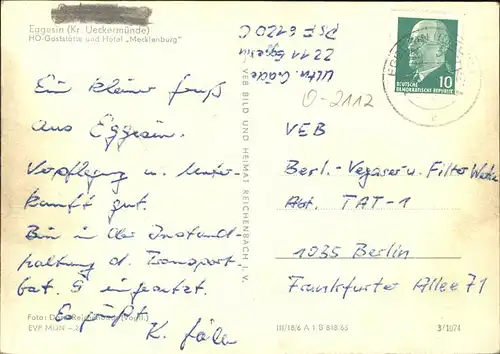 Eggesin (Kr. Ueckermünde)
HO-Gaststätte und Hotel „Mecklenburg"
Ein kleiner Gruß
aus Eggesin.
Verpflegung u. Unter-
kunft gut.
Bin in der Instand-
haltung d. Transport-
bat. 9 eingesetzt.
Es grüßt
K.
Foto: Reichenbach (Vogtl.)
VEB BILD UND HEIMAT REICHENBACH I. V.
2211 Eggesin
O-2112
DEUTSCHE
DEMOKRATISCHE REPUBLIK
10
VEB
Berl.-Vergaser u. Filter Werke
Abt. TAT-1
1035 Berlin
Frankfurter Allee 71
III/18/6 A 1 B 818/65
3/1074